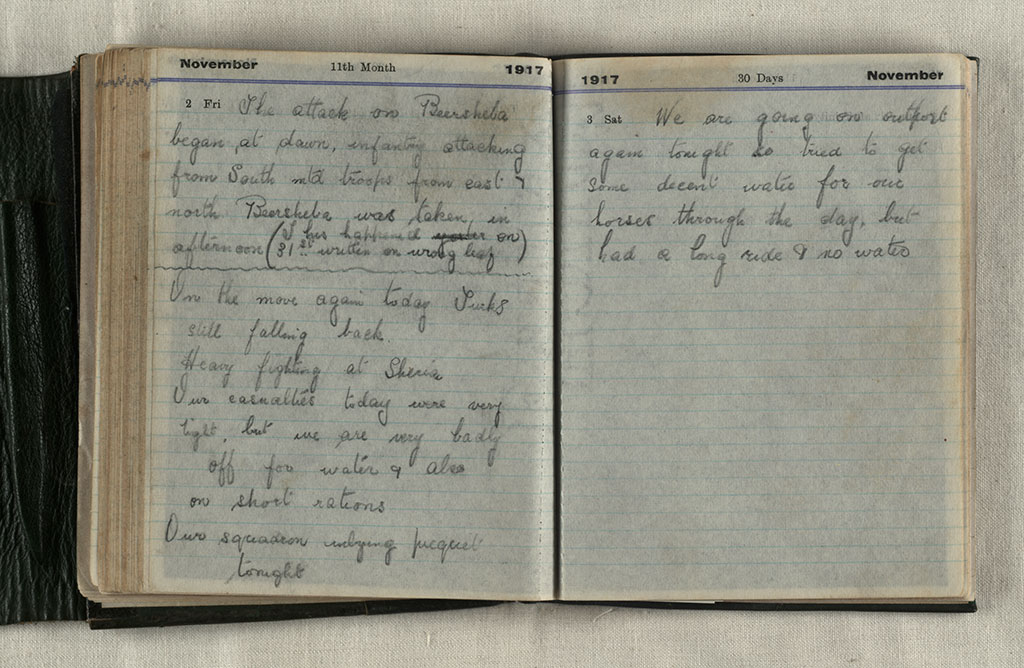 November 11th Month 1917
2 Fri The attack on Beersheba
began at dawn, infantry attacking
from South mtd troops from east &
north Beersheba was taken, in
afternoon (This happened on
31st written on wrong leaf)
On the move again today Turks
still falling back.
Heavy fighting at Sheria
Our casualties today were very
light, but we are very badly
off for water & also
on short rations
Our squadron inlying picquet
tonight
1917 30 Days November
3 Sat We are going on outpost
again tonight so tried to get
some decent water for our
horses through the day, but
had a long ride & no water